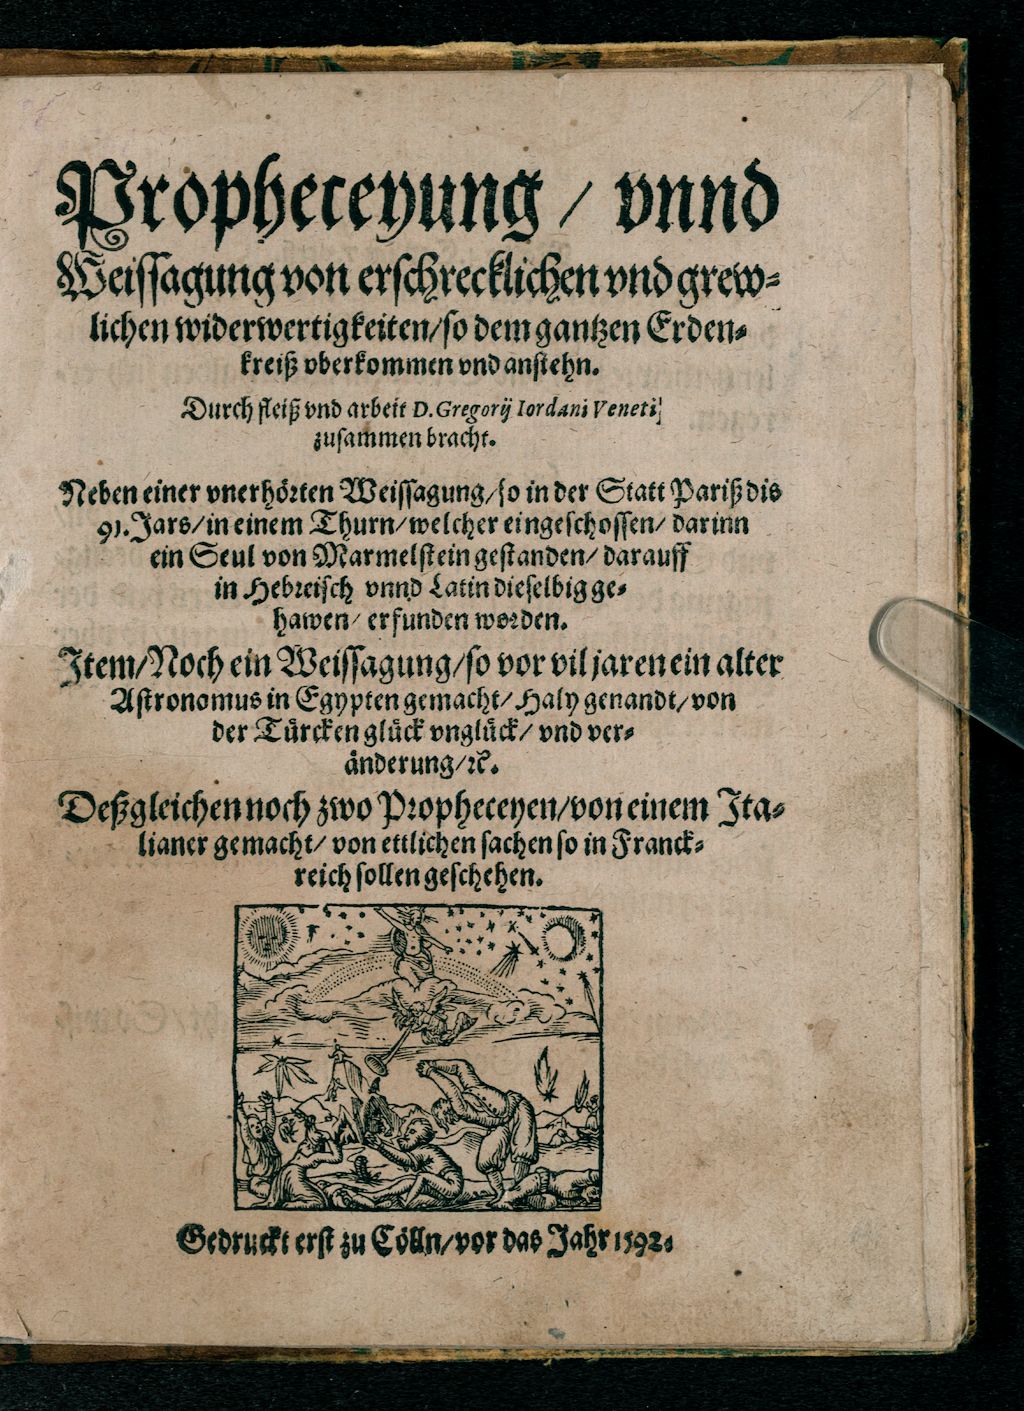 Propheceyung / vnnd
Weissagung von erschrecklichen vnd grew⸗
lichen widerwertigkeiten/so dem gantzen Erden⸗
kreiß vberkommen vnd anstehn.
Durch fleiß vnd arbeit D. Gregorij Iordani Veneti/
zusammen bracht.
Neben einer vnerhörten Weissagung/so in der Statt Pariß dis
91. Jars/in einem Thurn/welcher eingeschossen/ darinn
ein Seul von Marmelstein gestanden/ darauff
in Hebreisch vnnd Latin dieselbig ge⸗
hawen/ erfunden worden.
Item/Noch ein Weissagung/so vor vil jaren ein alter
Astronomus in Egypten gemacht/ Haly genandt/ von
der Türcken glück vnglück/ vnd ver⸗
änderung/ꝛc̃.
Deßgleichen noch zwo Propheceyen/von einem Ita⸗
lianer gemacht/ von ettlichen sachen so in Franck⸗
reich sollen geschehen.
Gedruckt erst zu Cölln/vor das Jahr 1592.